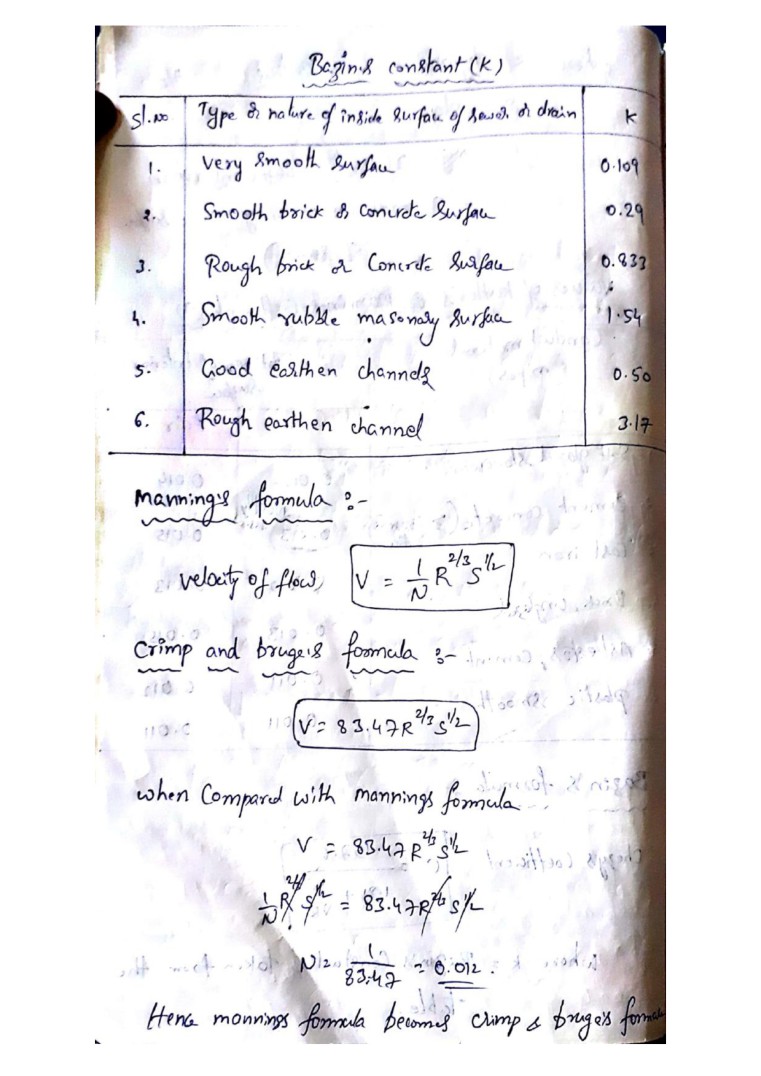 Bazin's constant (K)
Sl.no Type or nature of inside surface of sewer or drain K
1. Very smooth surface 0.109
2. Smooth brick & concrete surface 0.29
3. Rough brick or concrete surface 0.833
4. Smooth rubble masonary surface 1.54
5. Good earthen channels 0.50
6. Rough earthen channel 3.17
Manning's formula :-
velocity of flow, V = 1/N R^2/3 S^1/2
Crimp and bruge's formula :-
V = 83.47 R^2/3 S^1/2
when Compared with mannings formula
V = 83.47 R^2/3 S^1/2
1/N R^2/3 S^1/2 = 83.47 R^2/3 S^1/2
N = 1/83.47 = 0.012.
Hence mannings formula becomes crimp & bruge's formula